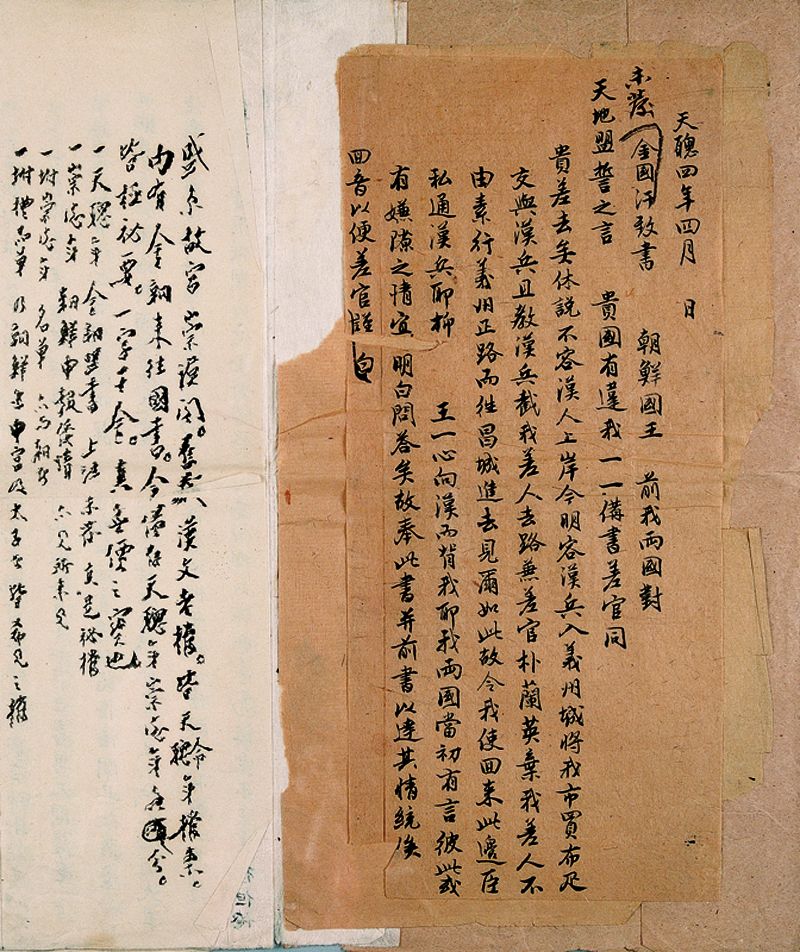 天聰四年四月　日
未發 金國汗致書　朝鮮國王　前我兩國對
天地盟誓之言　貴國有違我一一備書差官同
貴差去矣休説不容漢人上岸今明容漢兵入義州城將我市買布疋
交與漢兵且教漢兵截我差人去路無差官朴蘭英棄我差人不
由素行義州正路而徃昌城進去見爾如此故令我使回来此邊臣
私通漢兵耶抑　王一心向漢而背我耶我兩國當初有言彼此或
有嫌隙之情宜明白問荅矣故奉此書并前書以達其情統俟
回音以便差官
盛京故宮崇謨閣。舊 漢文老檔。皆天聰年檔案。
内有金朝来往國書。今僅存天聰年崇德年
皆極初要。一字千金。真無價之寶也
一天聰年 金朝盟書 上注未發 真是祕檔
一崇德年 朝鮮申報
一附崇德年 名單
一附禮品單 乃朝鮮 太子 皆希見之檔